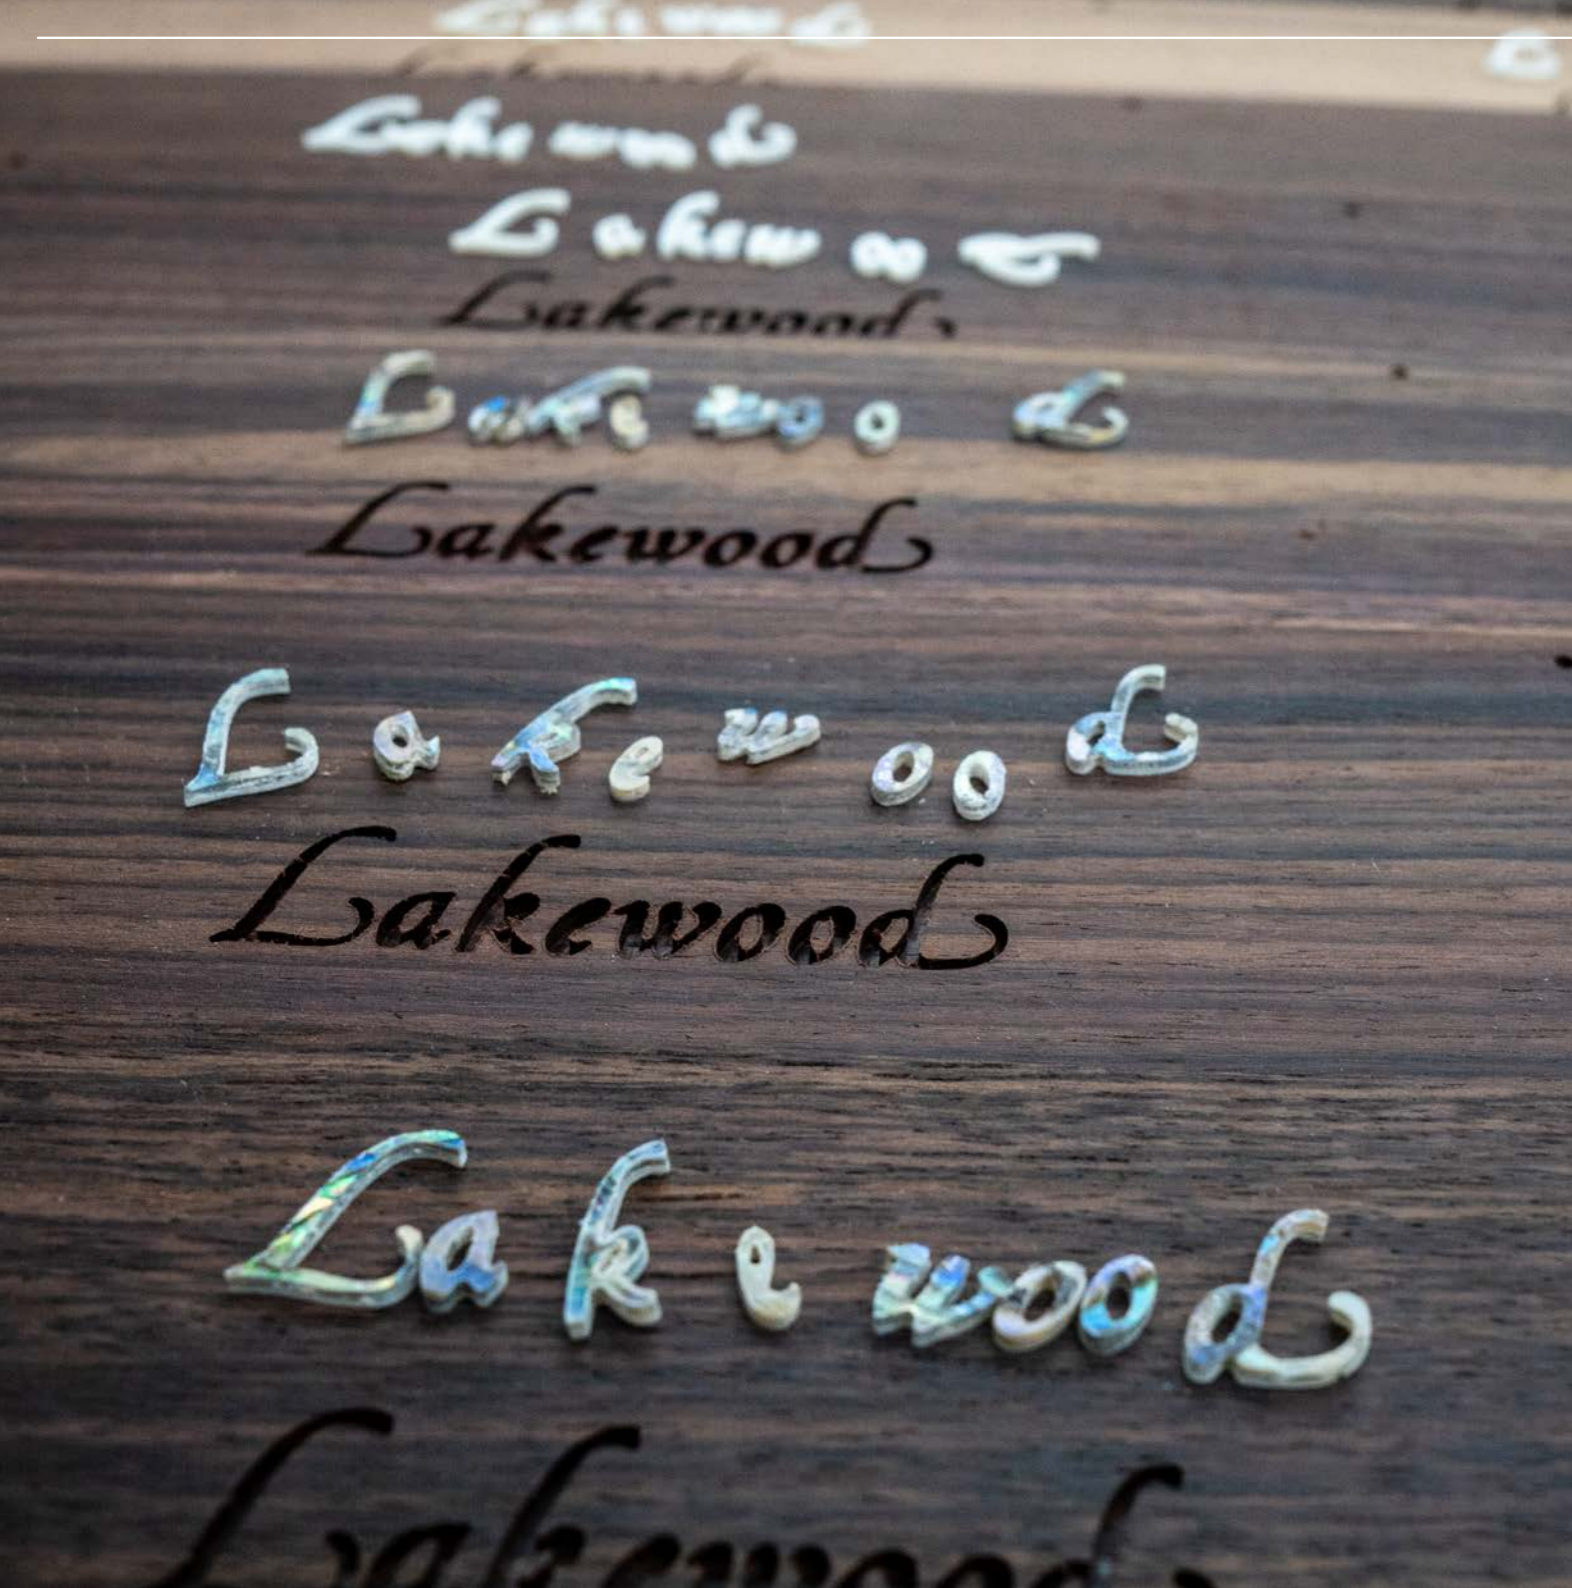 Lakewood
Lakewood
Lakewood
Lakewood
Lakewood
Lakewood
Lakewood
Lakewood
Lakewood
Lakewood